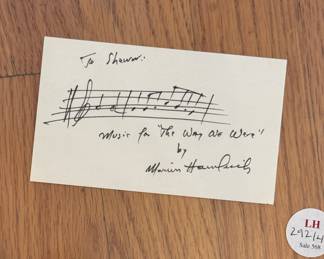 To Shawn:
Music for "The Way We Were"
by
Marvin Hamlisch
LH
292/4
Sale 568